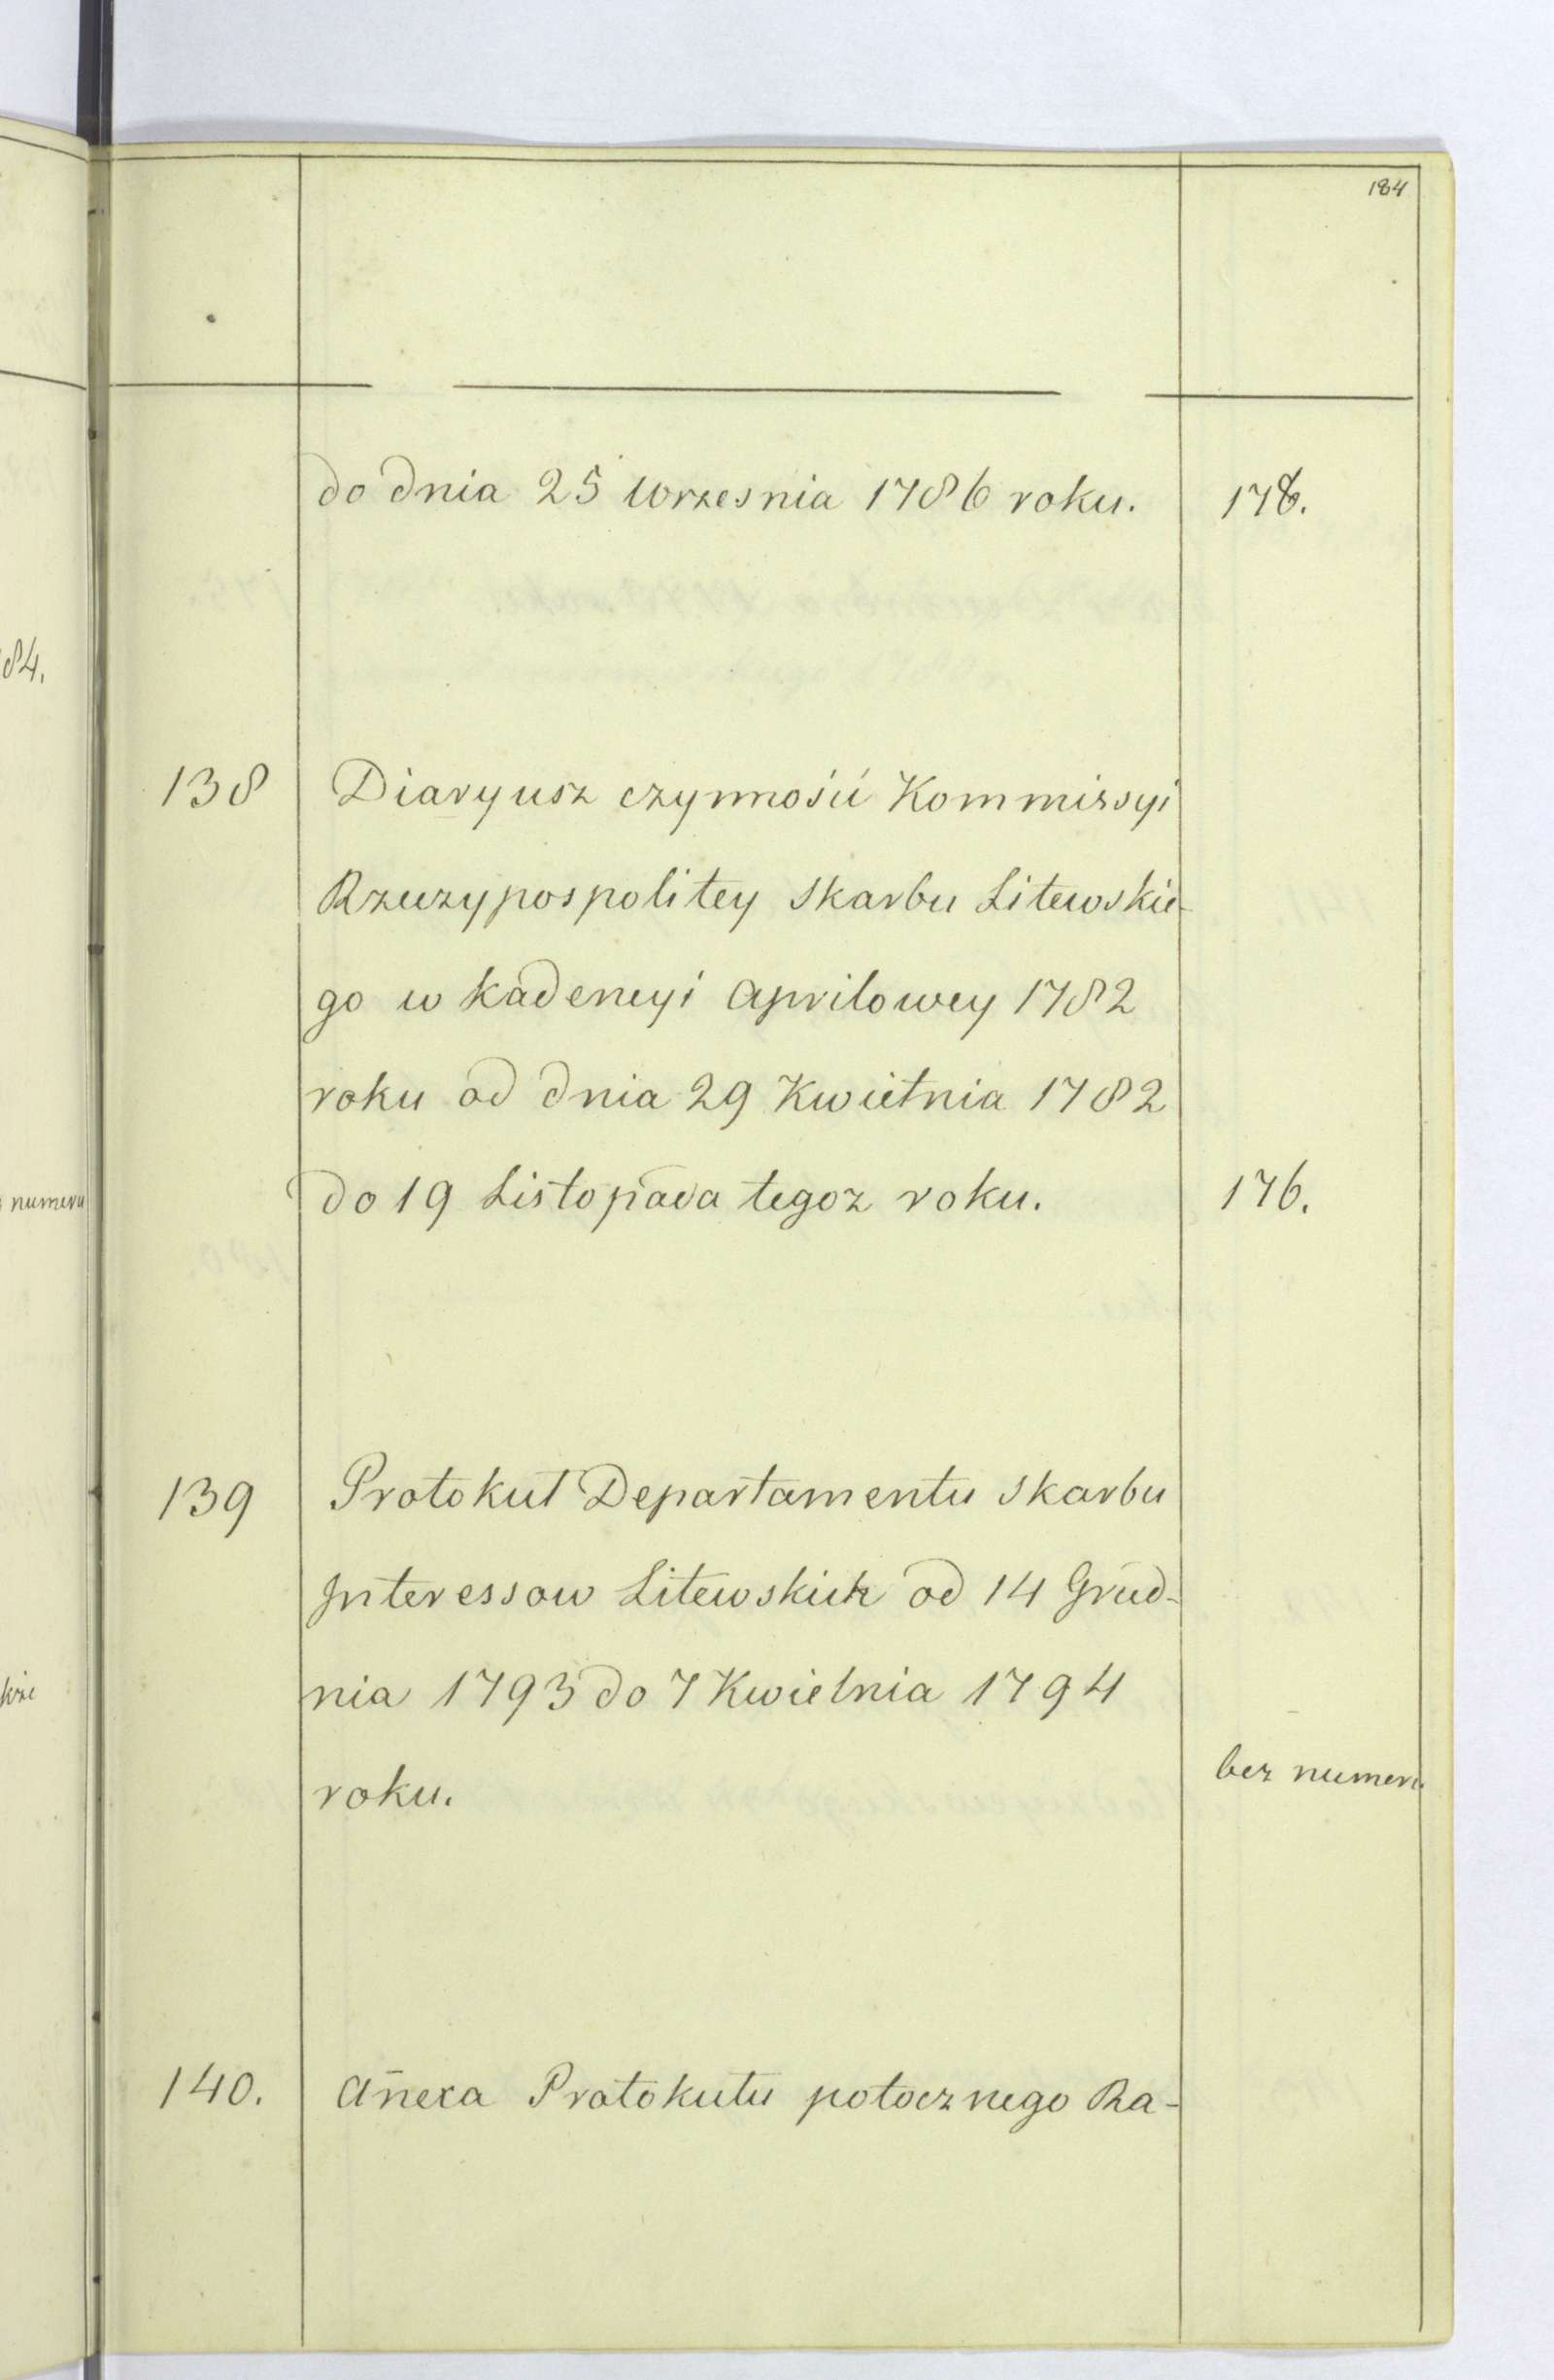 184
do dnia 25 Wrzesnia 1786 roku. 178.
138 Diaryusz czynnośći Kommissyi
Rzeczypospolitey Skarbu Litewskie-
go w kadencyi Aprilowey 1782
roku od dnia 29 Kwietnia 1782
do 19 Listopada tegoz roku. 176.
139 Protokuł Departamentu Skarbu
Interessow Litewskich od 14 Grud-
nia 1793 do 7 Kwietnia 1794
roku. bez numeru
140. Añexa Protokułu potocznego Ra-
84.
numeru